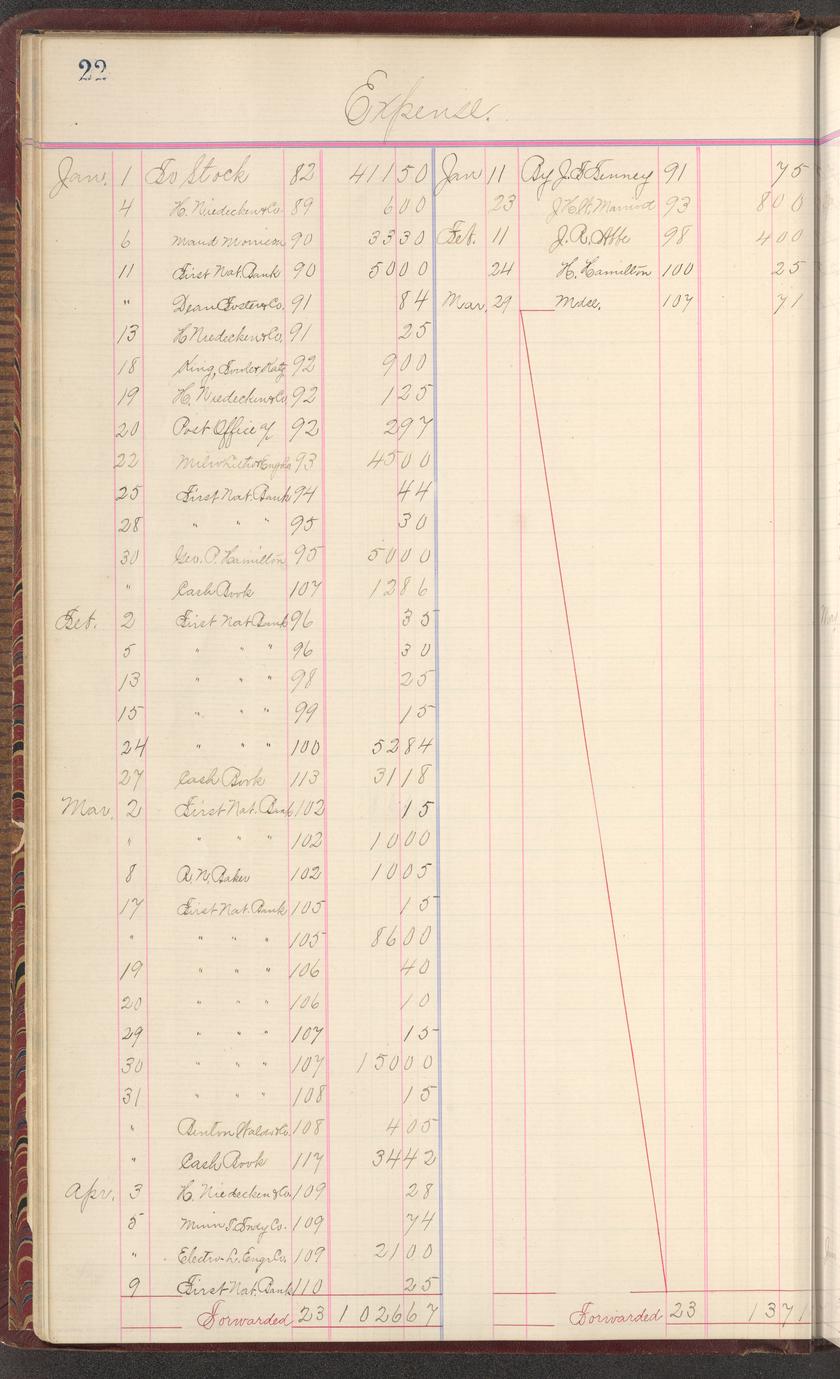 22
Expense.
Jan. 1 To Stock 82 411 50
4 H. Niedecken & Co. 89 6 00
6 Maud Morrison 90 33 30
11 First Nat. Bank 90 50 00
" Dean Foster & Co. 91 84
13 H Niedecken & Co. 91 25
18 King, Fowler 92 9 00
19 H. Niedecken & Co 92 1 25
20 Post Office 92 2 97
22 93 45 00
25 First Nat. Bank 94 44
28 " " " 95 30
30 Geo. P. Hamilton 95 50 00
" Cash Book 107 12 86
Feb. 2 First Nat Bank 96 35
5 " " " 96 30
13 " " " 98 25
15 " " " 99 15
24 " " " 100 52 84
27 Cash Book 113 31 18
Mar. 2 First Nat. Bank 102 15
" " " " 102 10 00
8 R. N. Baker 102 10 05
17 First Nat. Bank 105 15
" " " " 105 86 00
19 " " " 106 40
20 " " " 106 10
29 " " " 107 15
30 " " " 107 150 00
31 " " " 108 15
" Benton Co. 108 4 05
" Cash Book 117 34 42
Apr. 3 H. Niedecken & Co 109 28
5 Minn Co. 109 74
" Electro-L. Engr Co. 109 21 00
9 First Nat. Bank 110 25
Forwarded 23 1026 67
Jan 11 By J. F. Tenney 91 75
23 J H W. 93 8 00
Feb. 11 J. R. Abbe 98 4 00
24 H. Hamilton 100 25
Mar. 29 Mdse. 107 71
Forwarded 23 13 71